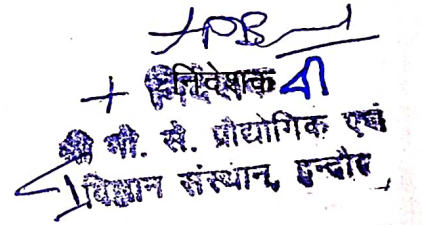 निदेशक
श्री गो. से. प्रौद्योगिक एवं
विज्ञान संस्थान, इन्दौर